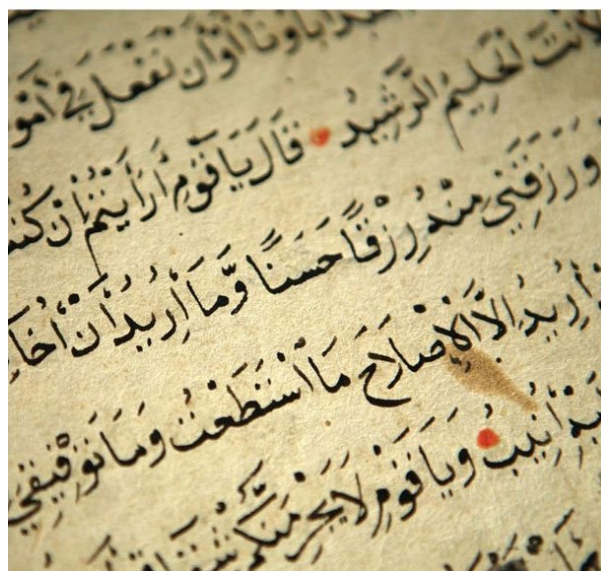 يَعْبُدُ اٰبَاؤُنَا أَوْاَنْ نَفْعَلَ فِي أَمْوَ
لَاَنْتَ الْحَلِيمُ الرَّشِيدُ قَالَ يَا قَوْمِ أَرَأَيْتُمْ اِنْ كُنْتُ
وَرَزَقَنِي مِنْهُ رِزْقًا حَسَنًا وَّمَا اُرِيدُ اَنْ اُخَا
اُرِيدُ اِلَّا الْاِصْلَاحَ مَا اسْتَطَعْتُ وَمَا تَوْفِيقِي
يْهِ اُنِيبُ وَيَا قَوْمِ لَا يَجْرِمَنَّكُمْ شِقَا